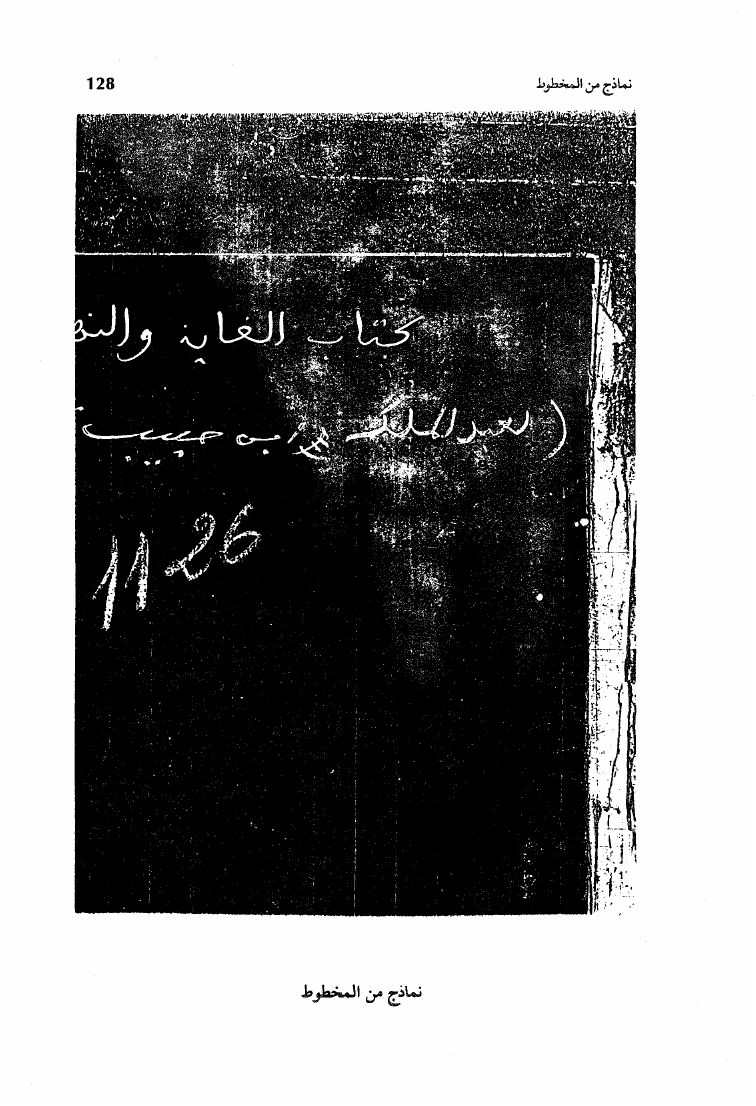 نماذج من المخطوط 128
كتاب الغاية والنه
(لعبد الملك ابن حبيب
1126
نماذج من المخطوط